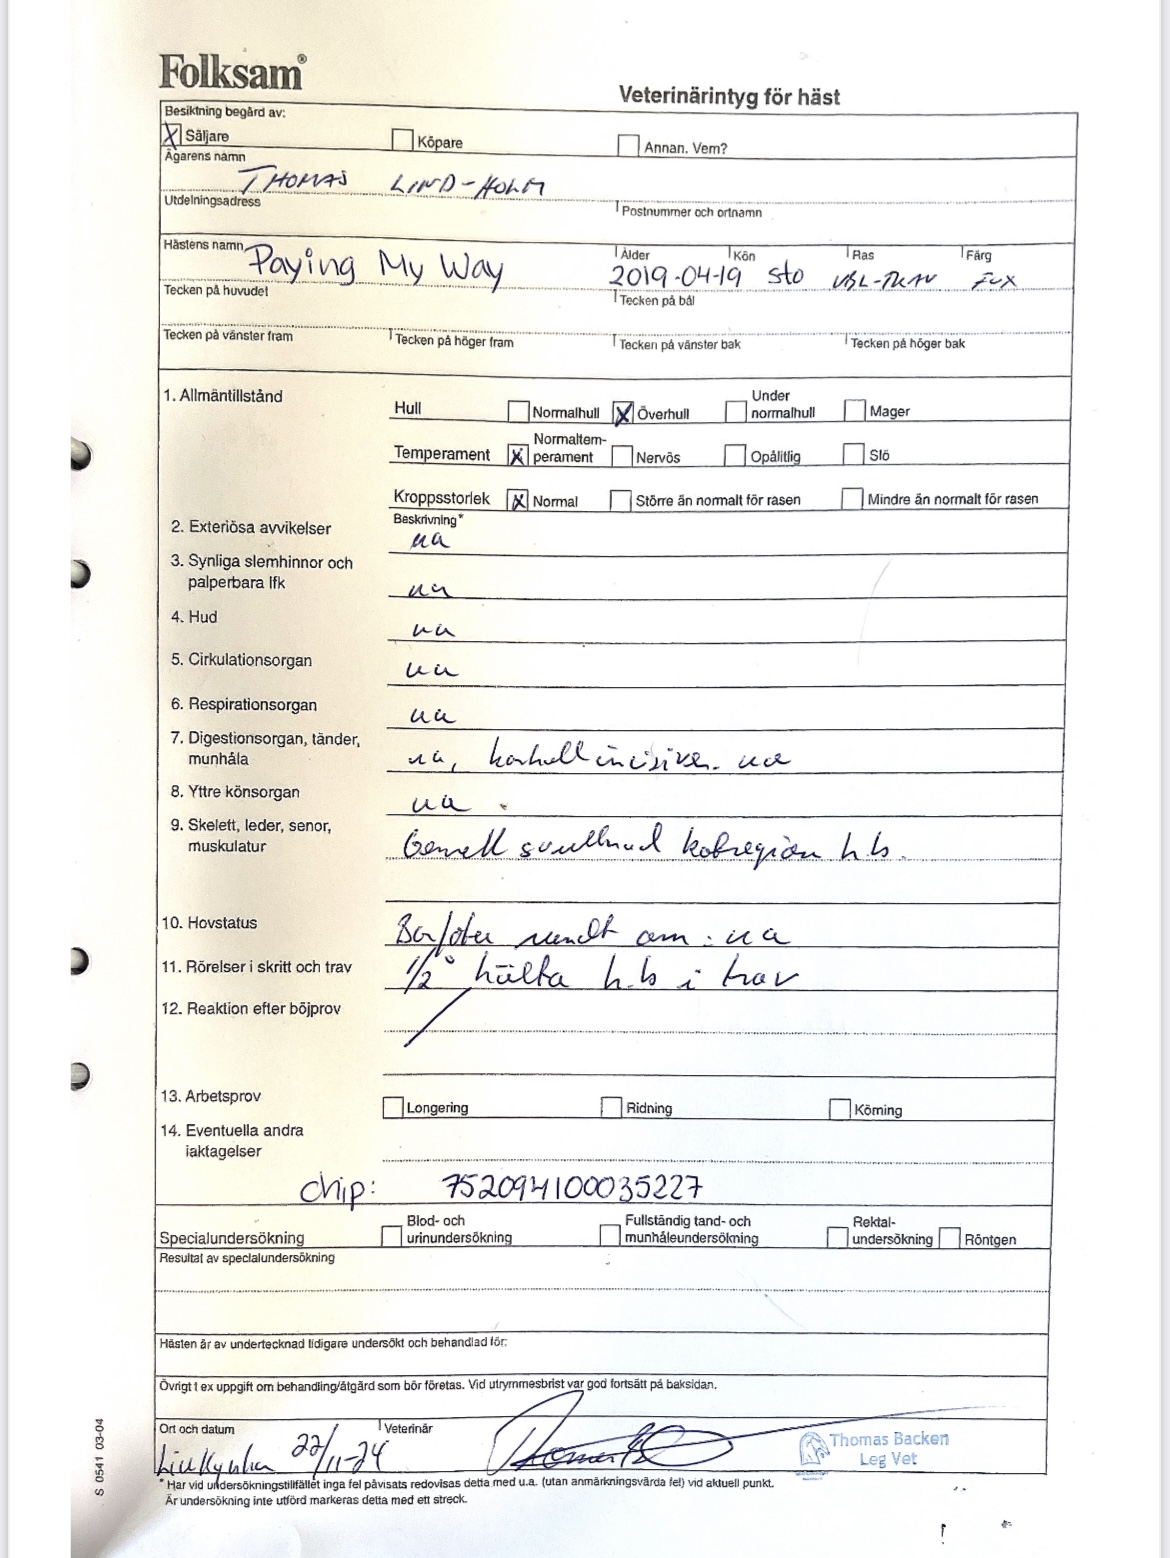 Folksam®
Veterinärintyg för häst
Besiktning begärd av:
X Säljare Köpare Annan. Vem?
Ägarens namn
THOMAS LIND-HOLM
Utdelningsadress Postnummer och ortnamn
Hästens namn Ålder Kön Ras Färg
Paying My Way 2019-04-19 sto VBL-TRAV FUX
Tecken på huvudet Tecken på bål
Tecken på vänster fram Tecken på höger fram Tecken på vänster bak Tecken på höger bak
1. Allmäntillstånd
Hull Normalhull X Överhull Under normalhull Mager
Temperament X Normaltem-perament Nervös Opålitlig Slö
Kroppsstorlek X Normal Större än normalt för rasen Mindre än normalt för rasen
Beskrivning*
2. Exteriösa avvikelser ua
3. Synliga slemhinnor och
palperbara lfk ua
4. Hud ua
5. Cirkulationsorgan ua
6. Respirationsorgan ua
7. Digestionsorgan, tänder,
munhåla ua, kontroll incisiver. ua
8. Yttre könsorgan ua
9. Skelett, leder, senor,
muskulatur svullnad kotregion h.b.
10. Hovstatus Barfota runt om: ua
11. Rörelser i skritt och trav 1/2° hälta h.b i trav
12. Reaktion efter böjprov
13. Arbetsprov Longering Ridning Körning
14. Eventuella andra
iaktagelser
chip: 752094100035227
Specialundersökning Blod- och urinundersökning Fullständig tand- och munhåleundersökning Rektal-undersökning Röntgen
Resultat av specialundersökning
Hästen är av undertecknad tidigare undersökt och behandlad för:
Övrigt t ex uppgift om behandling/åtgärd som bör företas. Vid utrymmesbrist var god fortsätt på baksidan.
Ort och datum Veterinär
22/11-24
Thomas Backen
Leg Vet
* Har vid undersökningstillfället inga fel påvisats redovisas detta med u.a. (utan anmärkningsvärda fel) vid aktuell punkt.
Är undersökning inte utförd markeras detta med ett streck.
S 0541 03-04